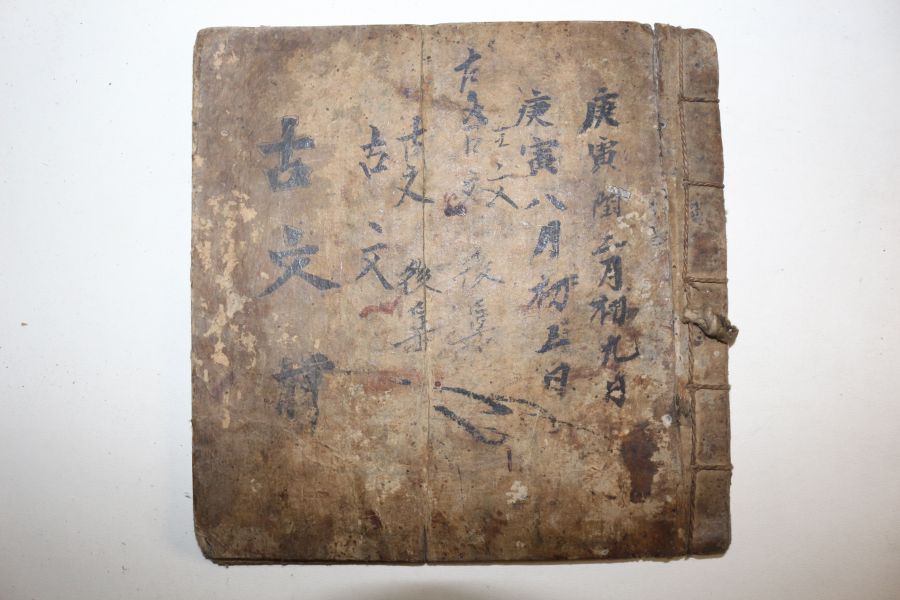 庚寅閏二月初九日
庚寅八月初三日
文
古文古文後集
古文後集
古文
古文前